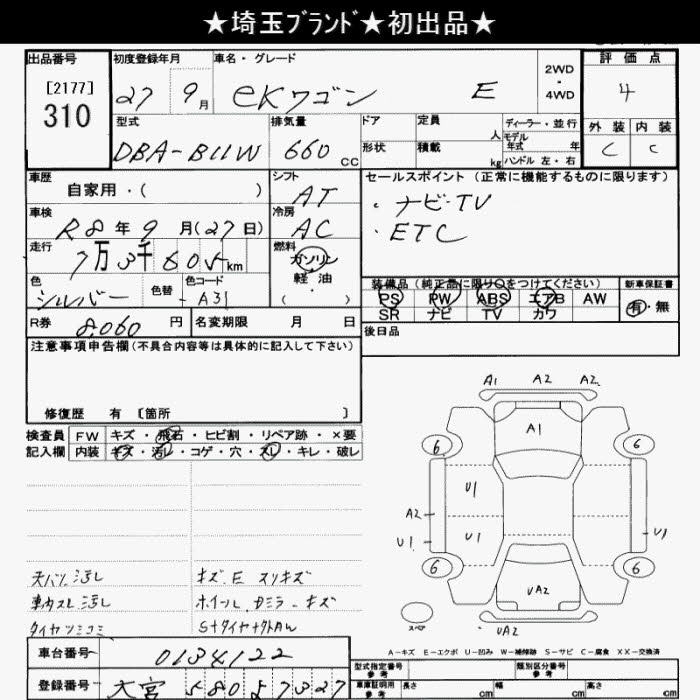 ★埼玉ﾌﾞﾗﾝﾄﾞ★初出品★
出品番号 初度登録年月 車名・グレード 2WD・4WD 評価点
[2177]
310
27 9月 eKワゴン E 4
型式 排気量 ドア 定員 人 ディーラー・並行 外装 内装
モデル年式 年
DBA-B11W 660cc 形状 積載 kg ハンドル 左・右 C C
車歴 シフト セールスポイント (正常に機能するものに限ります)
自家用・( ) AT ・ナビ・TV
車検 冷房 ・ETC
R8年9月(27日) AC
走行 燃料
7万3千605km ガソリン
軽油
・( )
色 色替 色コード 装備品(純正品に限り○をつけてください) 新車保証書
シルバー A31 PS PW ABS エアB AW 有・無
SR ナビ TV カワ
R券 8,060円 名変期限 月 日 後日品
注意事項申告欄(不具合内容等は具体的に記入して下さい)
修復歴 有 [箇所 ]
検査員 FW キズ・飛石・ヒビ割・リペア跡・×要
記入欄 内装 キズ・汚レ・コゲ・穴・スレ・キレ・破レ
A1 A2 A2
A1
6 6
U1
A2
U1 U1 U1
6 6
UA2
スペア
UA2
天バリ汚レ キズ.E スリキズ
車内スレ汚レ ホイール.Dミラーキズ
タイヤツミコミ S+タイヤ+外AW
A-キズ E-エクボ U-凹み W-補修跡 S-サビ C-腐食 XX-交換済
車台番号 0134122
型式指定番号 参考 類別区分番号 参考
登録番号 大宮 580 え 7327
車庫証明用 参考 長さ cm 幅 cm 高さ cm